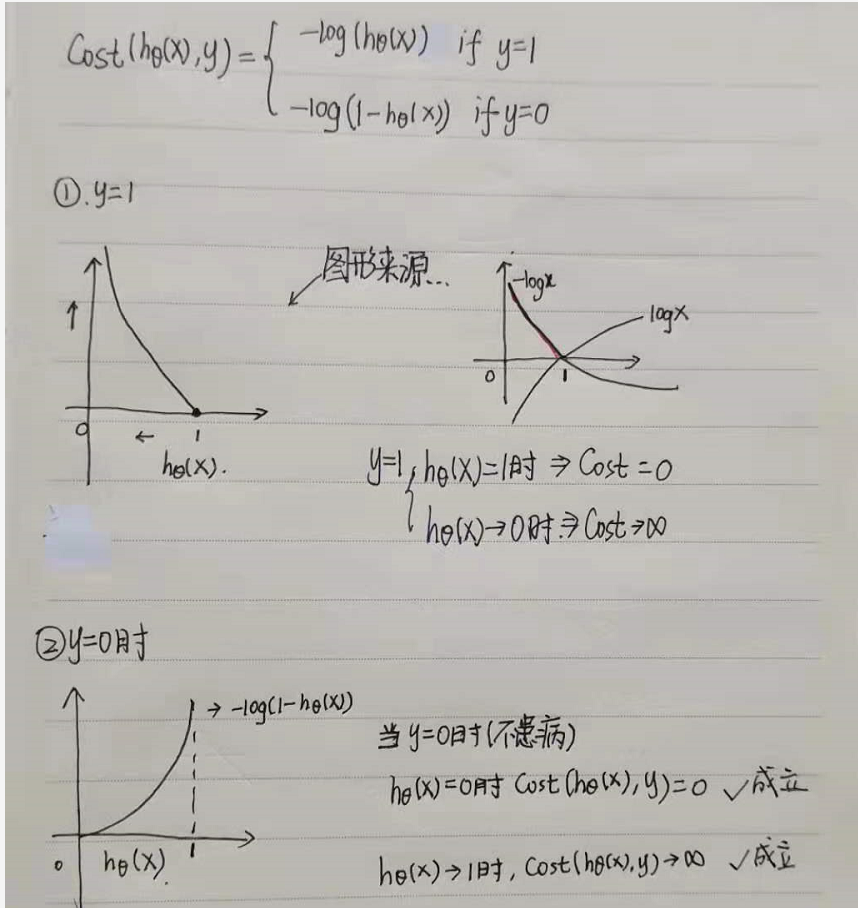 Cost(hθ(x),y)={ -log(hθ(x)) if y=1
-log(1-hθ(x)) if y=0
①.y=1
图形来源...
-logx
logx
0
1
0
1
hθ(x).
y=1, hθ(x)=1时 ⇒ Cost=0
hθ(x)→0时.⇒ Cost→∞
②y=0时
→ -log(1-hθ(x))
当y=0时(不患病)
hθ(x)=0时 Cost(hθ(x),y)=0 ✓成立
0
hθ(x).
1
hθ(x)→1时, Cost(hθ(x),y)→∞ ✓成立